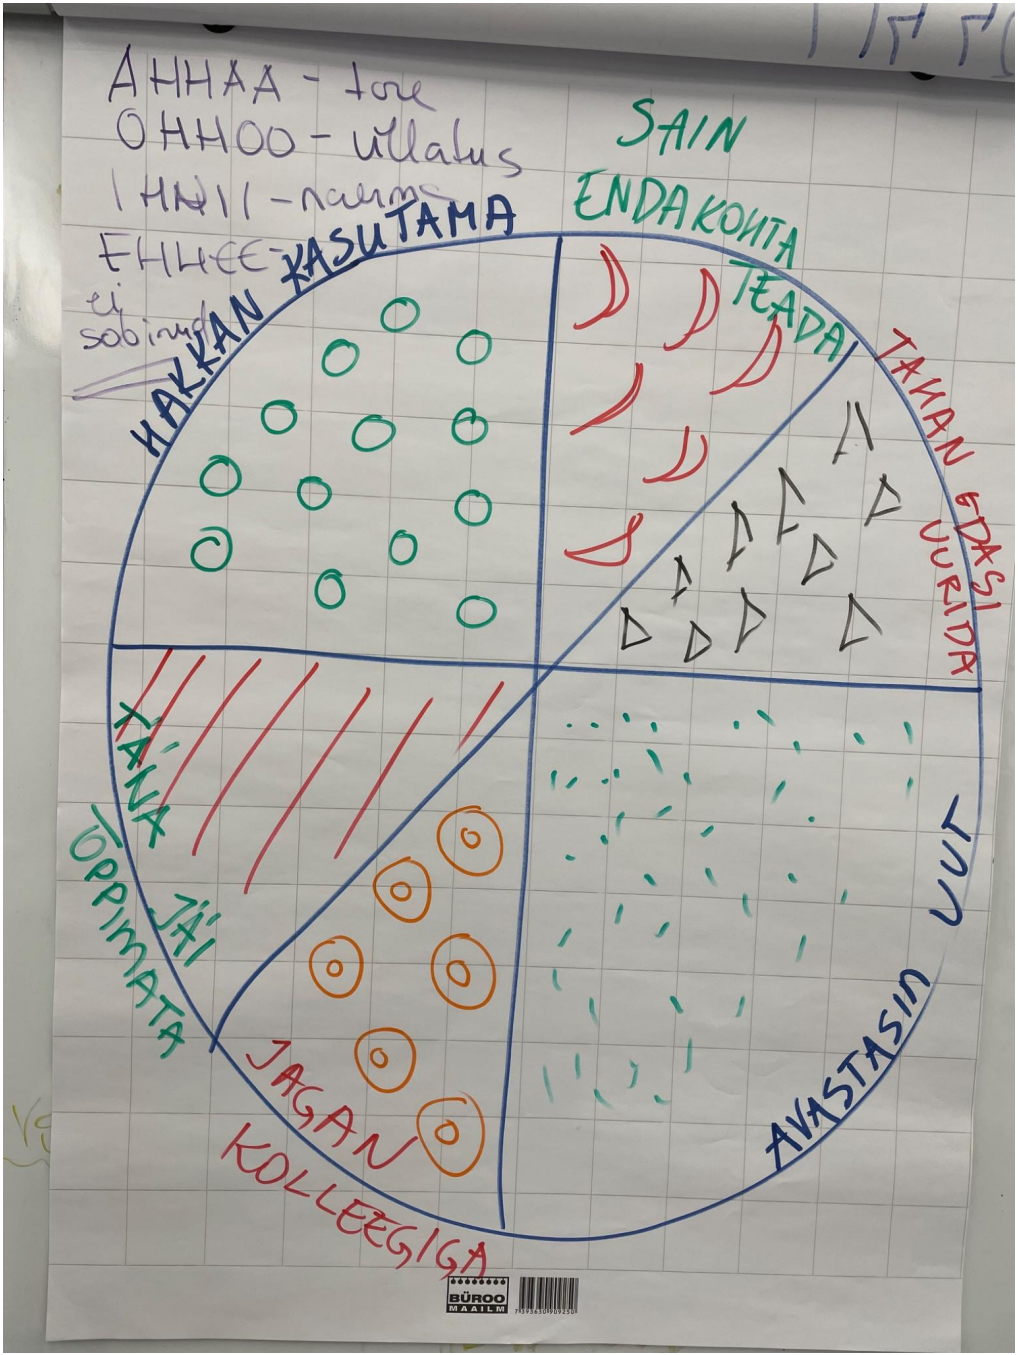 AHHAA - tore
OHHOO - üllatus
IHHII - naerma
EHHEE -
ei
sobinud
HAKKAN KASUTAMA
SAIN
ENDA KOHTA
TEADA
TAHAN EDASI
UURIDA
AVASTASIN UUT
JAGAN
KOLLEEGIGA
TÄNA JÄI
ÕPPIMATA
BÜROO
MAAILM